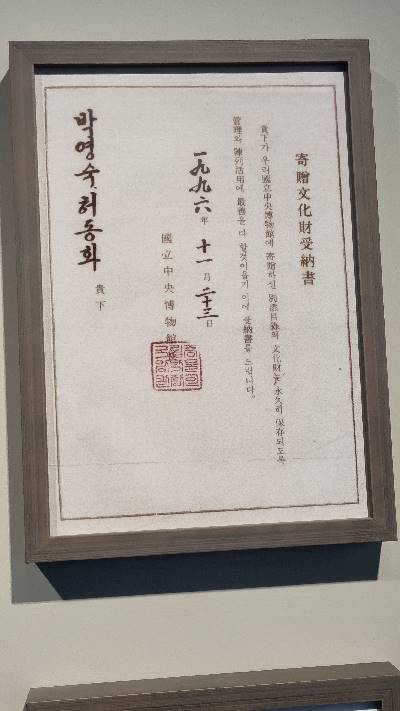 寄贈文化財受納書
貴下가 우리 國立中央博物館에 寄贈하신 別添目錄의 文化財는 永久히 保存되도록
管理와 陳列活用에 最善을 다 할것이옵기 이에 受納書를 드립니다.
一九九六年 十一月 二十三日
國立中央博物館長
박영숙, 허동화 貴下